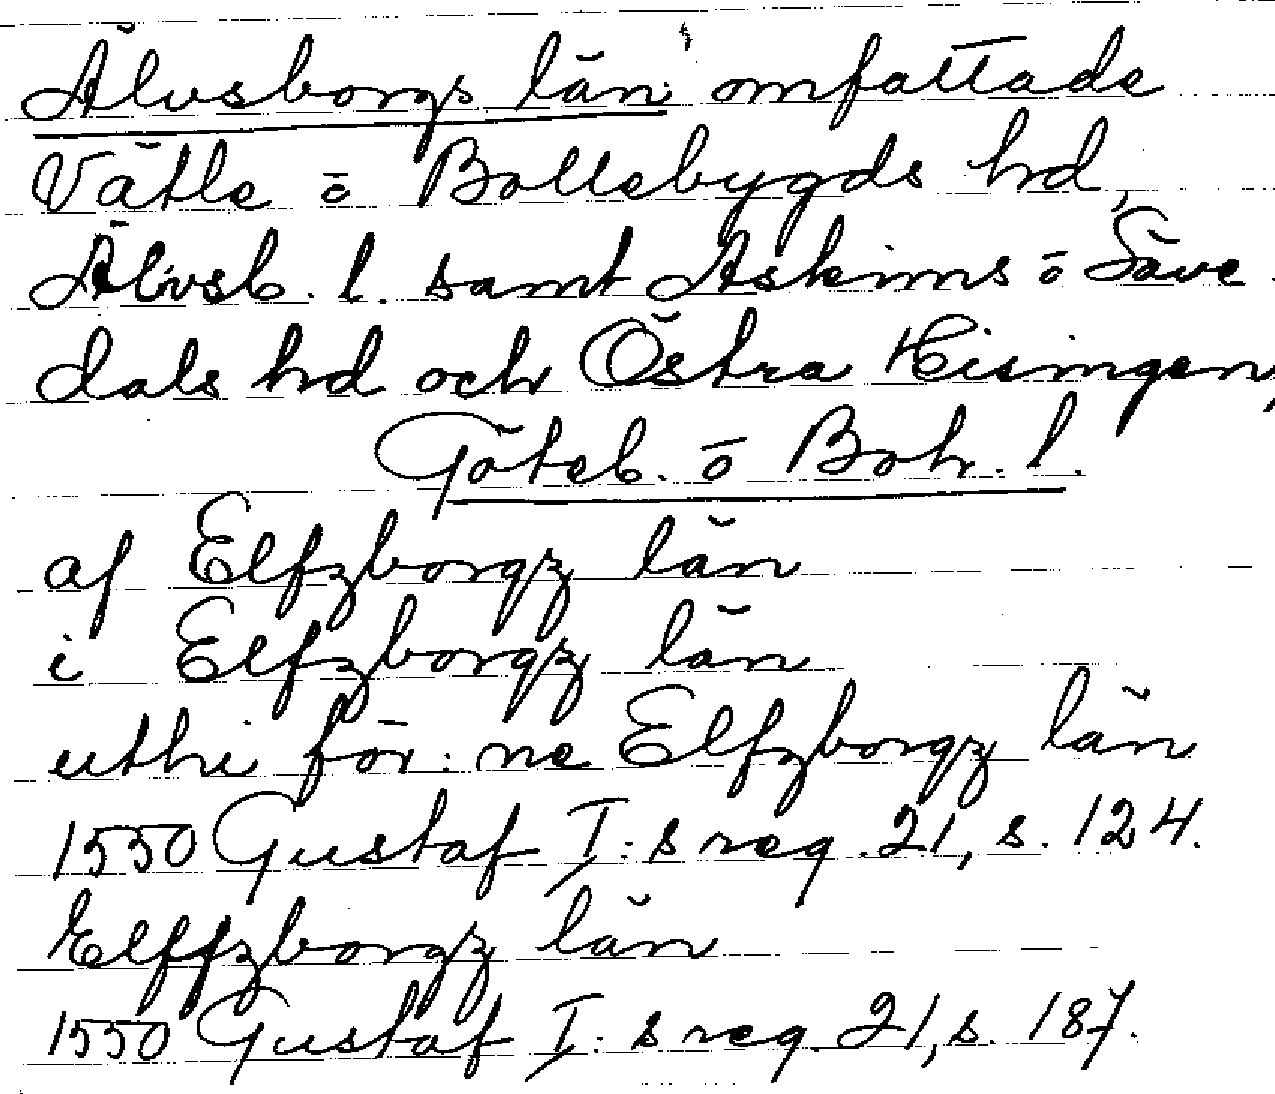 Älvsborgs län omfattade
Vättle o Bollebygds hd,
Älvsb. l. samt Askims o Säve
dals hd och Östra Hisingen,
Göteb. o Boh. l.
af Elfzborgz län
i Elfzborgz län
uthi för:ne Elfzborgz län
1550 Gustaf I:s reg. 21, s. 124.
Elffzborgz län
1550 Gustaf I:s reg. 21, s. 187.